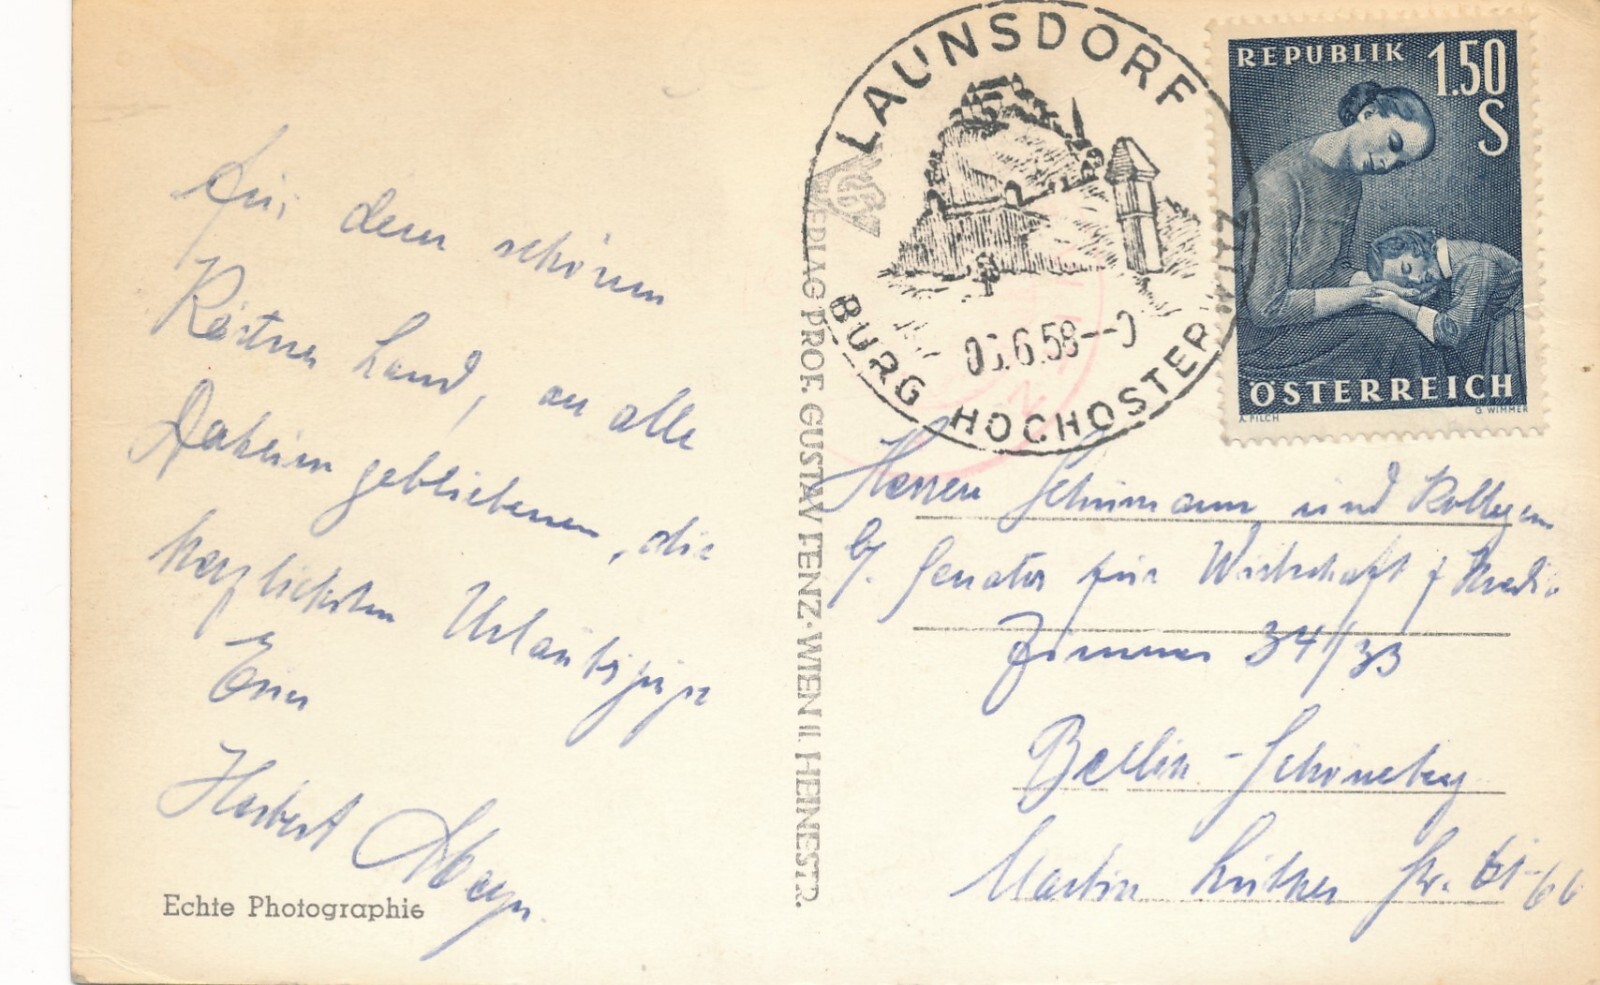 Aus dem schönen
Kärtner Land, an alle
Daheim gebliebenen, die
herzlichsten Urlaubsgrüße
Euer
Herbert
Echte Photographie
VERLAG PROF. GUSTAV FENZ · WIEN II. HEINESTR.
LAUNSDORF
BURG HOCHOSTERWITZ
6.58--0
REPUBLIK
1.50
S
ÖSTERREICH
A. PILCH
G. WIMMER
Herren Schümann und Kollegen
b/. Senator für Wirtschaft
Zimmer 34/33
Berlin-Schöneberg
Martin Luther Str. 61-66